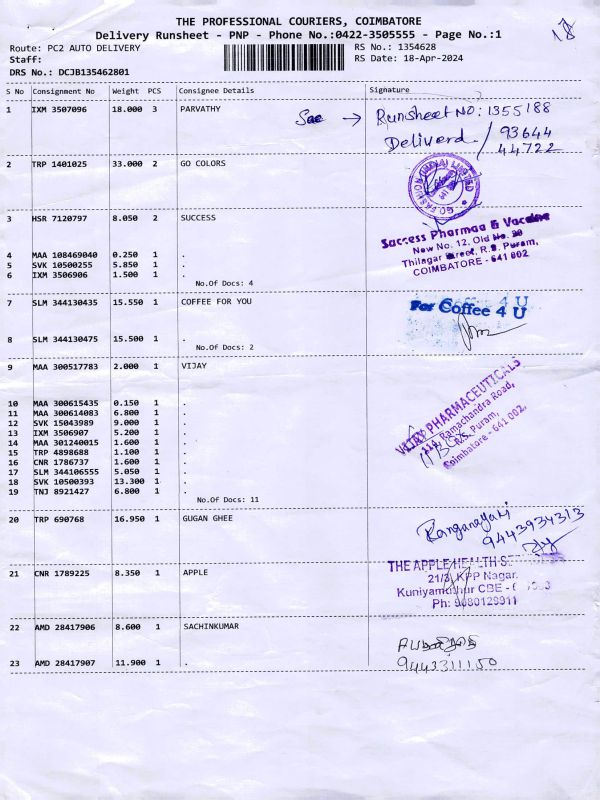 18
THE PROFESSIONAL COURIERS, COIMBATORE
Delivery Runsheet - PNP - Phone No.:0422-3505555 - Page No.:1
Route: PC2 AUTO DELIVERY
RS No.: 1354628
Staff:
RS Date: 18-Apr-2024
DRS No.: DCJB135462801
S No Consignment No Weight PCS Consignee Details Signature
1 IXM 3507096 18.000 3 PARVATHY
See → Runsheet NO: 1355188
Deliverd / 93644
44722
2 TRP 1401025 33.000 2 GO COLORS
GO FASHION (INDIA) LIMITED
3 HSR 7120797 8.050 2 SUCCESS
Success Pharmaa & Vaccine
New No. 12, Old No. 30
Thilagar Street, R.S. Puram,
COIMBATORE - 641 002
4 MAA 108469040 0.250 1 .
5 SVK 10500255 5.850 1 .
6 IXM 3506906 1.500 1 .
No.Of Docs: 4
7 SLM 344130435 15.550 1 COFFEE FOR YOU
For Coffee 4 U
8 SLM 344130475 15.500 1 .
No.Of Docs: 2
9 MAA 300517783 2.000 1 VIJAY
VIJAY PHARMACEUTICALS
Ramachandra Road,
R.S. Puram,
Coimbatore - 641 002.
10 MAA 300615435 0.150 1 .
11 MAA 300614083 6.800 1 .
12 SVK 15043989 9.000 1 .
13 IXM 3506907 5.200 1 .
14 MAA 301240015 1.600 1 .
15 TRP 4898688 1.100 1 .
16 CNR 1786737 1.600 1 .
17 SLM 344106555 5.050 1 .
18 SVK 10500393 13.300 1 .
19 TNJ 8921427 6.800 1 .
No.Of Docs: 11
20 TRP 690768 16.950 1 GUGAN GHEE
Ranganayaki
9443934313
21 CNR 1789225 8.350 1 APPLE
THE APPLE HEALTH
21/3, KPP Nagar.
Kuniyamuthur CBE -
Ph: 9080129911
22 AMD 28417906 8.600 1 SACHINKUMAR
23 AMD 28417907 11.900 1 .
9443311150